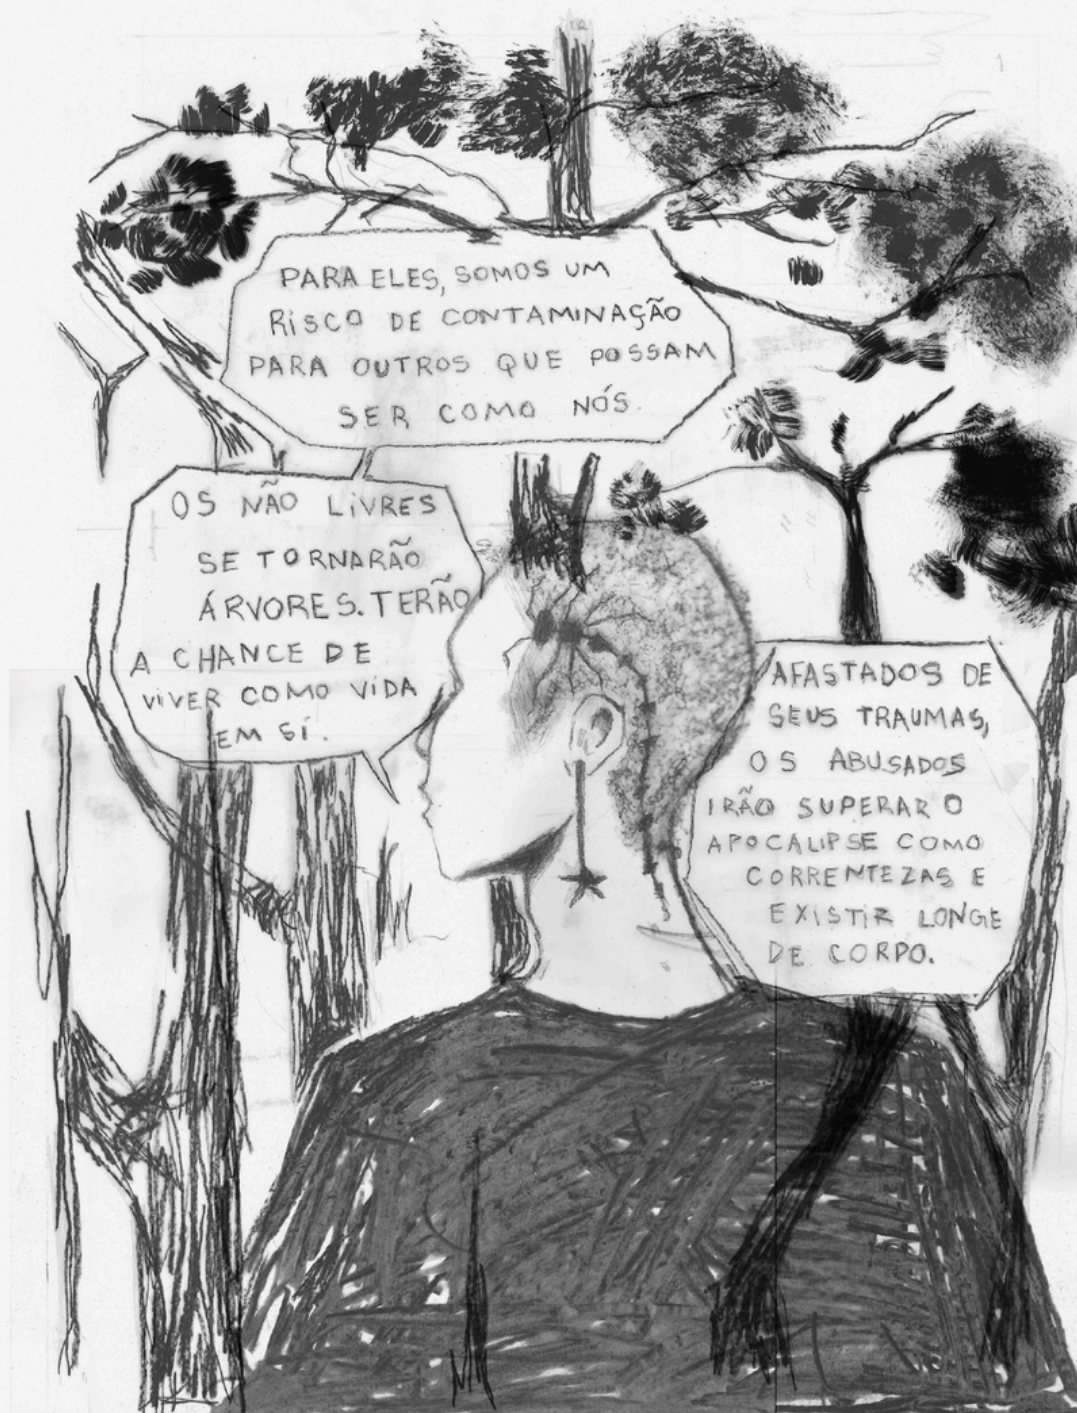 PARA ELES, SOMOS UM
RISCO DE CONTAMINAÇÃO
PARA OUTROS QUE POSSAM
SER COMO NÓS.
OS NÃO LIVRES
SE TORNARÃO
ÁRVORES. TERÃO
A CHANCE DE
VIVER COMO VIDA
EM SÍ.
AFASTADOS DE
SEUS TRAUMAS,
OS ABUSADOS
IRÃO SUPERAR O
APOCALIPSE COMO
CORRENTEZAS E
EXISTIR LONGE
DE CORPO.